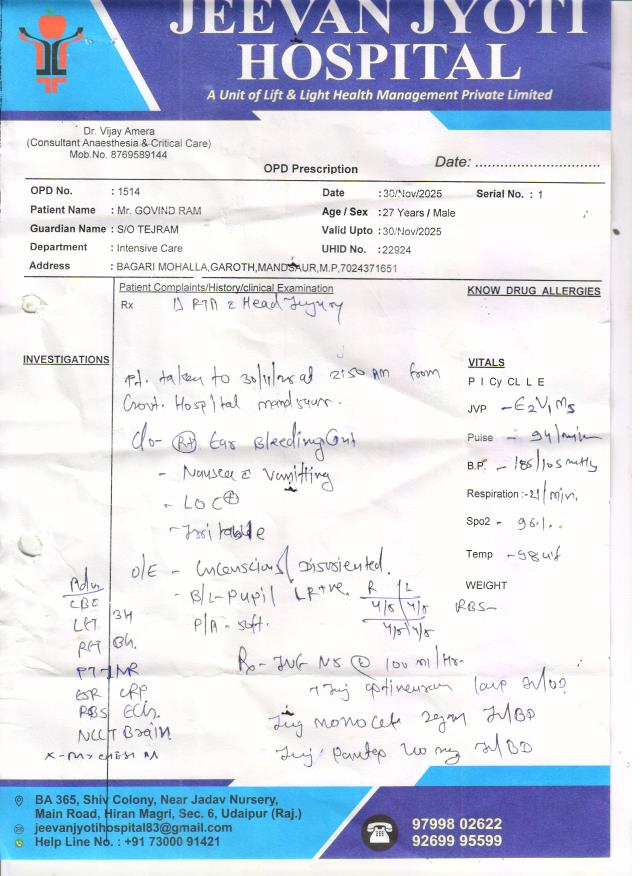 JEEVAN JYOTI
HOSPITAL
A Unit of Lift & Light Health Management Private Limited
Dr. Vijay Amera
(Consultant Anaesthesia & Critical Care)
Mob.No. 8769589144
Date: ..............................
OPD Prescription
OPD No. : 1514 Date : 30/Nov/2025 Serial No. : 1
Patient Name : Mr. GOVIND RAM Age / Sex : 27 Years / Male
Guardian Name : S/O TEJRAM Valid Upto : 30/Nov/2025
Department : Intensive Care UHID No. : 22924
Address : BAGARI MOHALLA,GAROTH,MANDSAUR,M.P,7024371651
Patient Complaints/History/clinical Examination KNOW DRUG ALLERGIES
Rx RTA Head Injury
INVESTIGATIONS
Pt. taken to 30/11/25 at 2:50 AM from
Govt. Hospital mandsaur.
C/o - Rt Ear Bleeding
- Nausea & Vomitting
- LOC +
- Irritable
O/E - Unconscious/ Disoriented.
- B/L - Pupil LR+ve R L
P/A - soft.
VITALS
P I Cy CL L E
JVP - E2V1M5
Pulse - 94/min
B.P. -
Respiration :- 21/min.
Spo2 - 96%.
Temp - 98
WEIGHT
RBS-
Adv
CBC
LFT
RFT
PT-INR
ESR CRP
RBS ECG
NCCT Brain
X-Ray chest
Rx - NS @ 100 ml/Hr.
Inj
Inj monocef 2gm BD
Inj Pantop BD
BA 365, Shiv Colony, Near Jadav Nursery,
Main Road, Hiran Magri, Sec. 6, Udaipur (Raj.)
jeevanjyotihospital83@gmail.com
Help Line No. : +91 73000 91421
97998 02622
92699 95599